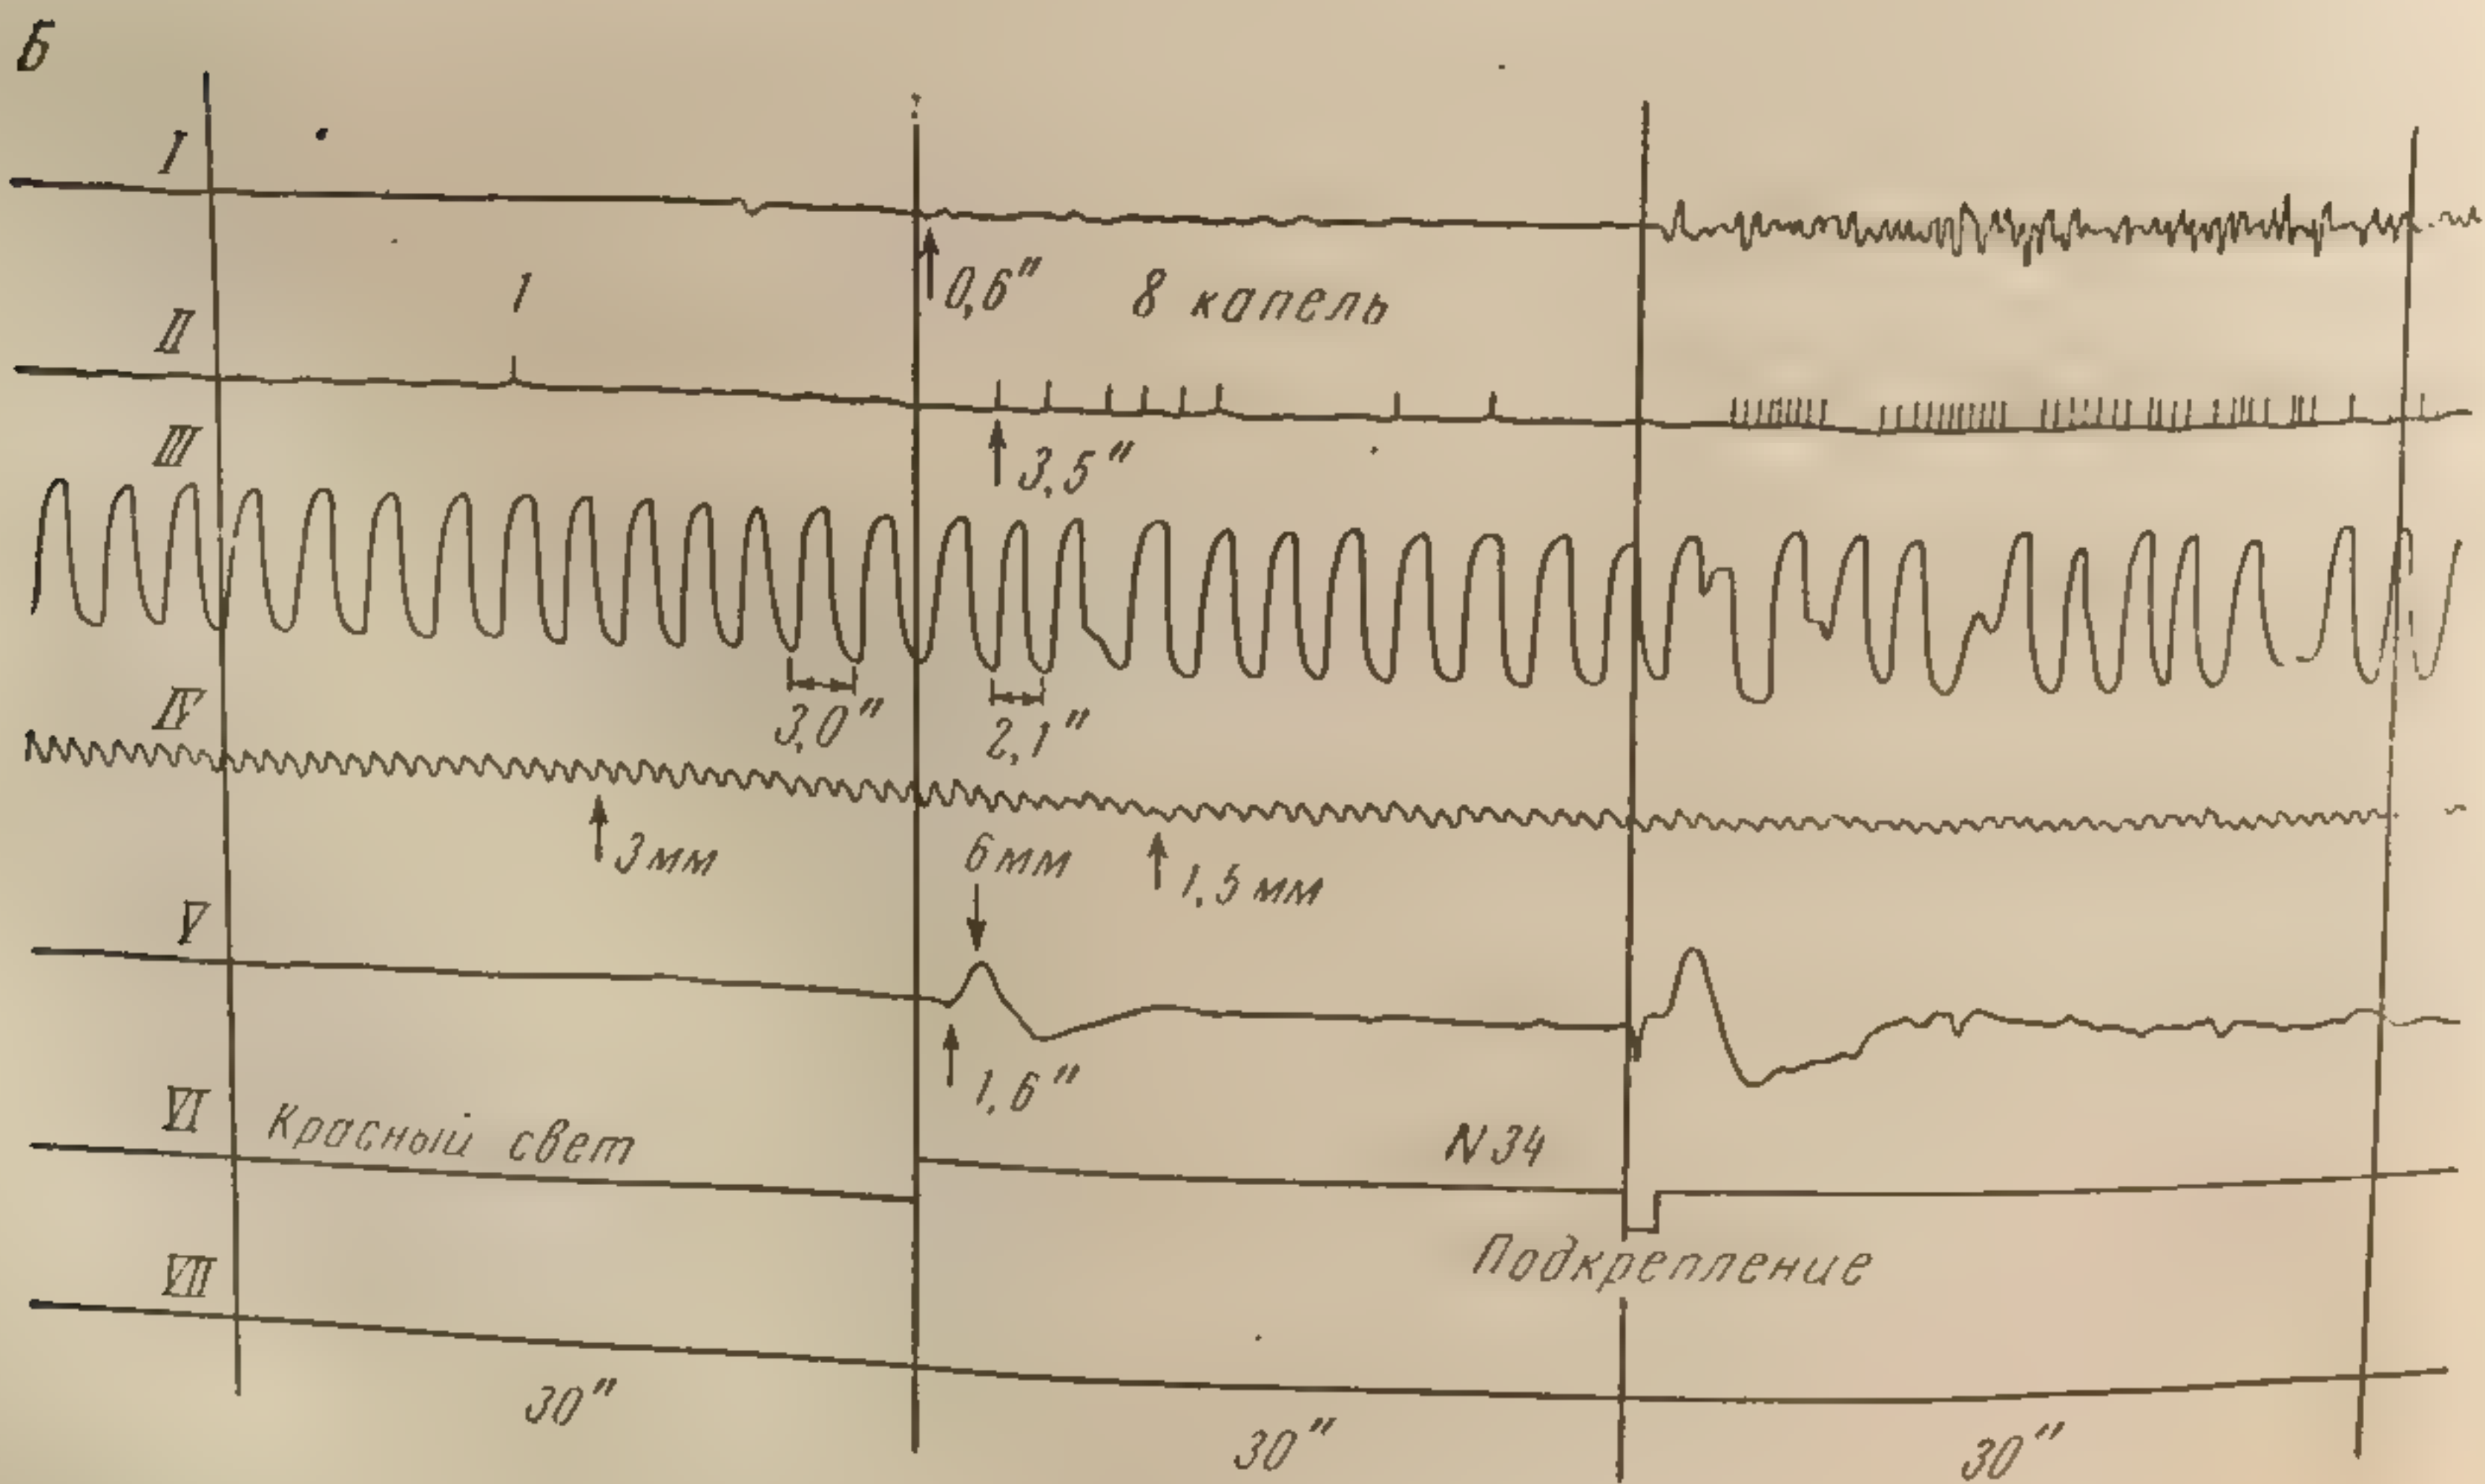 Б
I
0,6"
8 капель
1
II
3,5"
III
3,0"
2,1"
IV
3 мм
6 мм
1,5 мм
V
1,6"
VI
Красный свет
N 34
Подкрепление
VII
30"
30"
30"